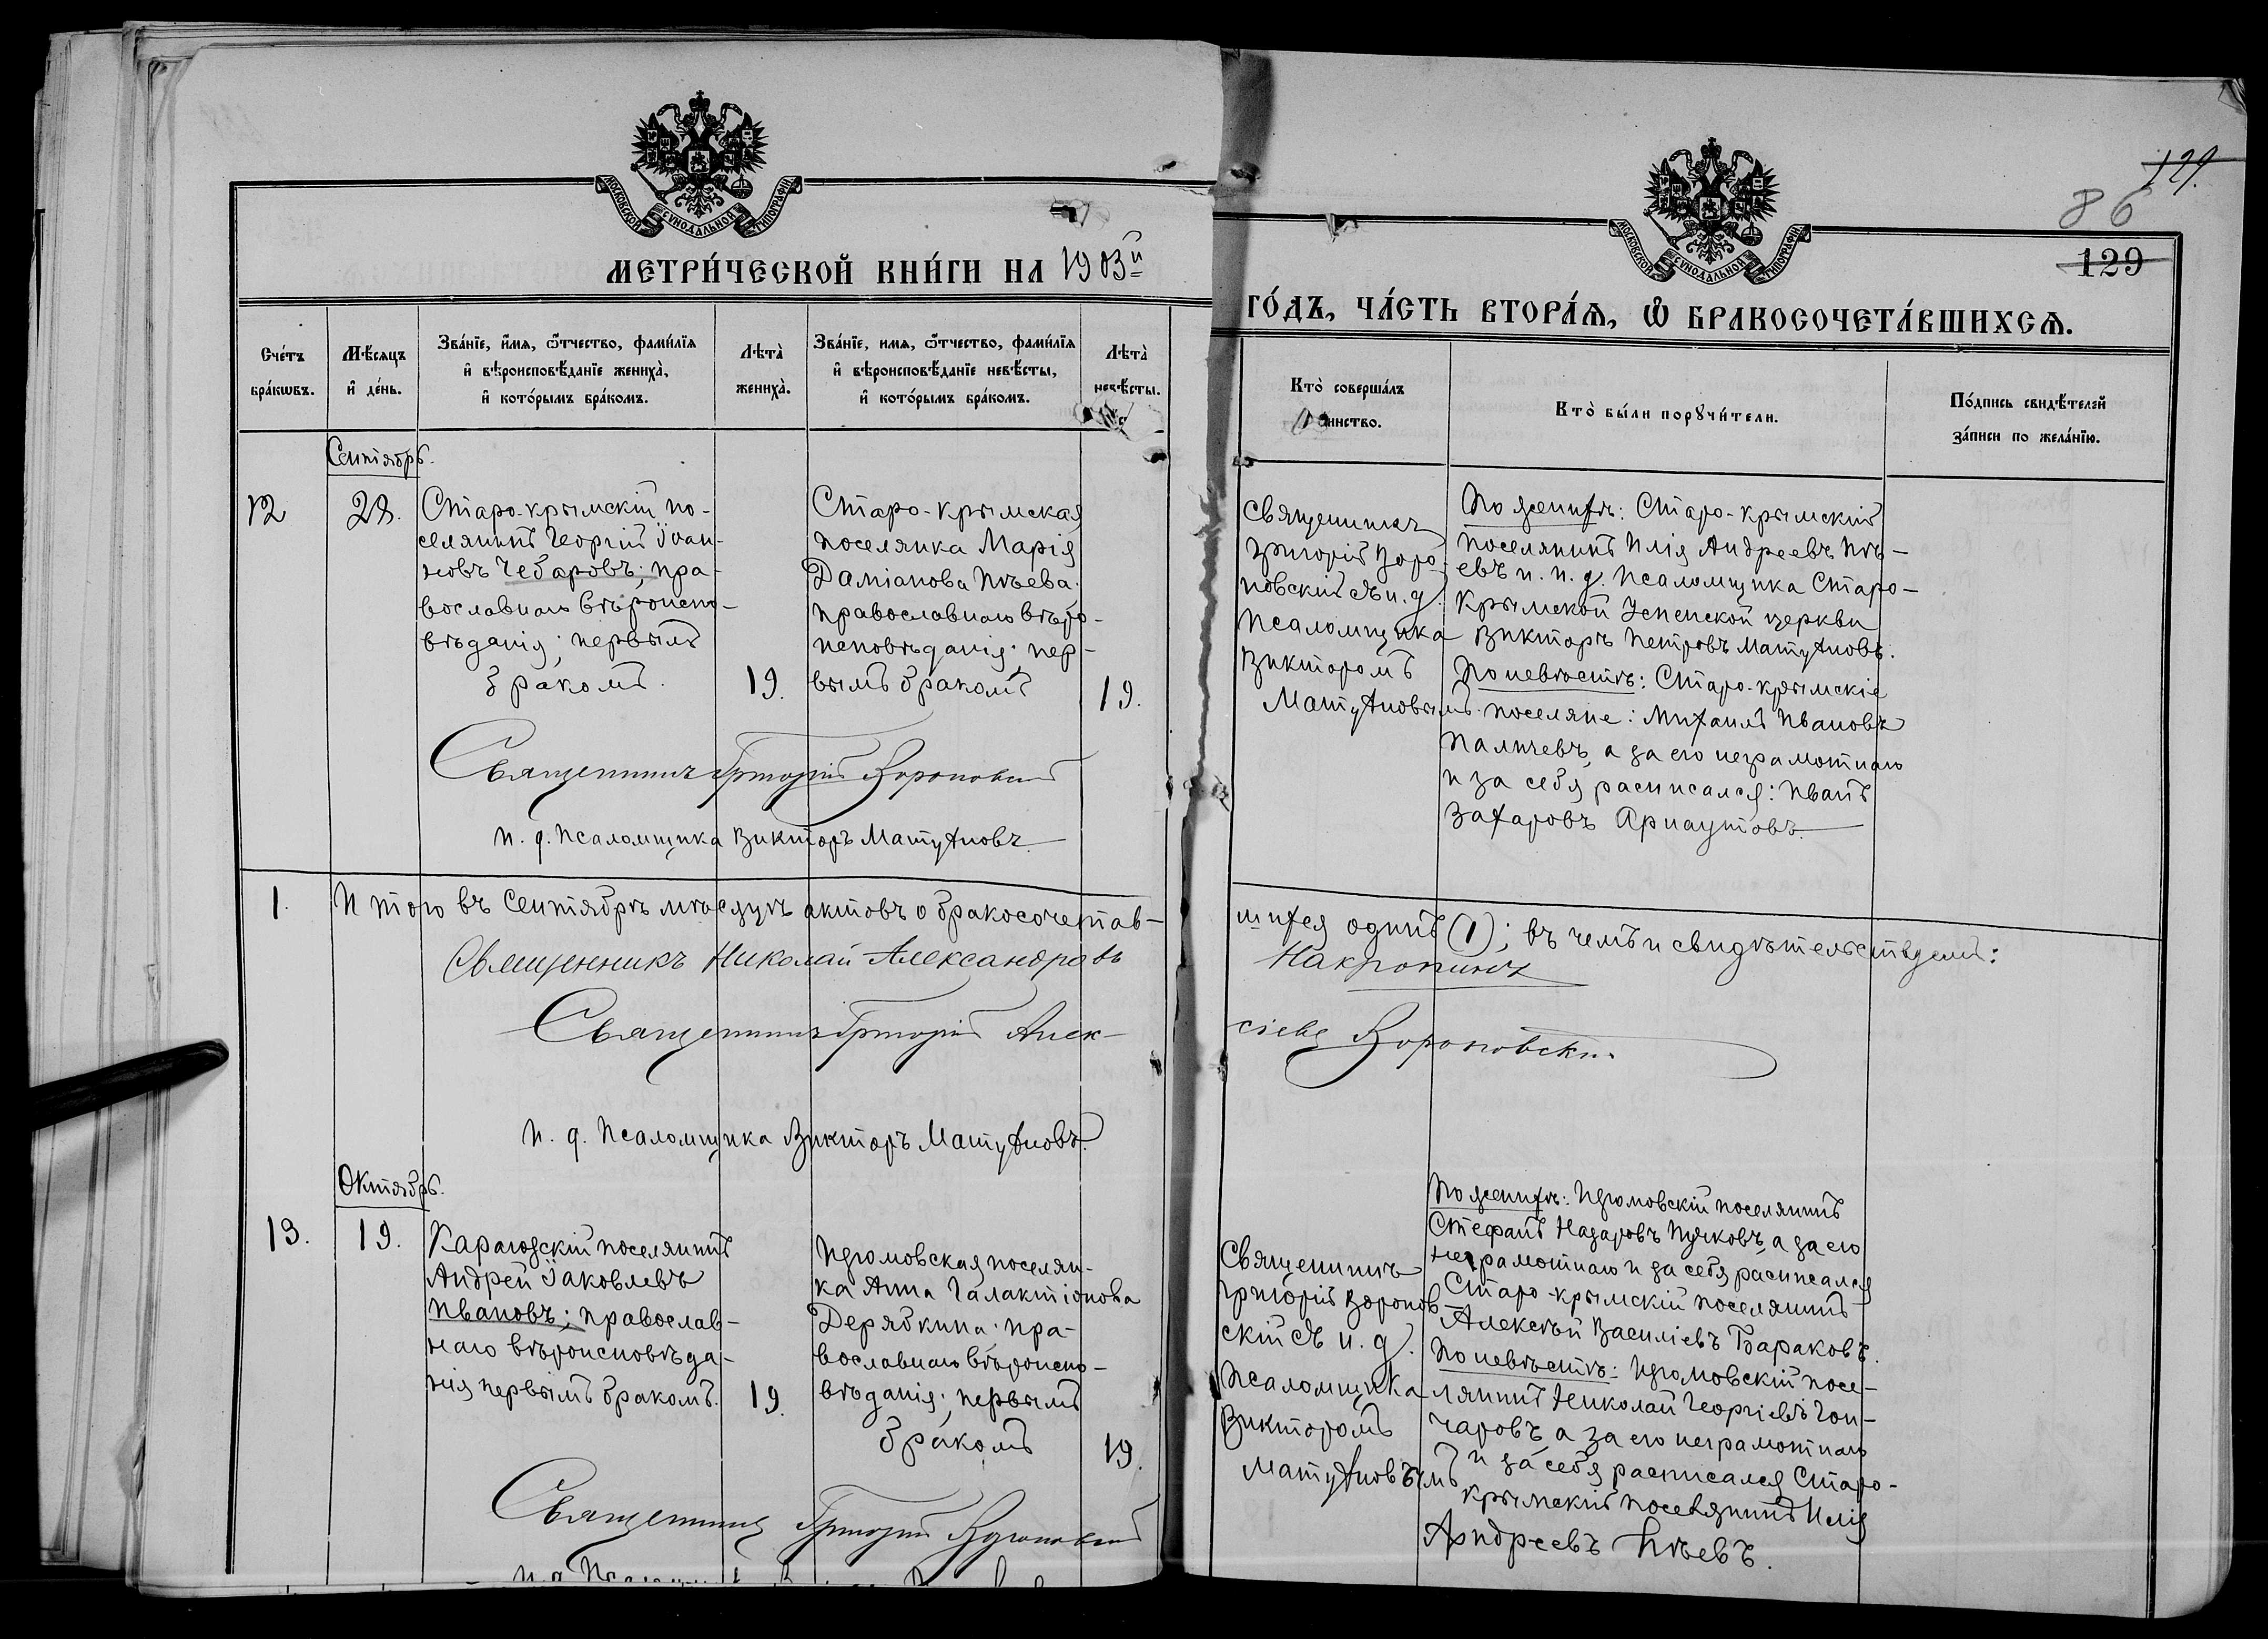 129.
86
129
МОСКОВСКОЙ СУНОДАЛЬНОЙ ТИПОГРАФІИ
МОСКОВСКОЙ СУНОДАЛЬНОЙ ТИПОГРАФІИ
МЕТРИ́ЧЕСКОЙ КНИ́ГИ НА 1903й
ГО́ДЪ, ЧА́СТЬ ВТОРА́Ѧ, Ѽ БРАКОСОЧЕТА́ВШИХСѦ.
Сче́тъ
бра́кѡвъ.
Мѣ́сяцъ
и҆ де́нь.
Зва́нїе, и҆́мя, ѻ҆́тчество, фами́лїя
и҆ вѣ̀роисповѣ́данїе женихѐ,
и҆ кото́рымъ бра́комъ.
Лѣта̀
жениха̀.
Зва́нїе, имя, ѻ҆́тчество, фами́лїя
и҆ вѣ̀роисповѣ́данїе невѣ́сты,
и҆ кото́рымъ бра́комъ.
Лѣта̀
невѣ́сты.
Кто̀ соверша́лъ
таинство.
Кто̀ бы́ли порꙋчи́тели.
По́дпись свидѣ́телей
за́писи по жела́нїю.
Сентябрь.
12
28.
Старо-крымскій по-
селянинъ Георгій Іоан-
новъ Чебаровъ; пра-
вославнаго вѣроиспо-
вѣданія; первымъ
бракомъ.
19.
Старо-крымская
поселянка Марія
Даміанова Пѣева.
православнаго вѣро-
исповѣданія; пер-
вымъ бракомъ
19.
Священникъ
Григорій Воро-
новскій съ и. д.
псаломщика
Викторомъ
Матухновымъ.
По женихѣ: Старо-крымскій
поселянинъ Илія Андреевъ Пѣ-
евъ и и. д. псаломщика Старо-
Крымской Успенской церкви
Викторъ Петровъ Матухновъ.
По невѣстѣ: Старо-крымскіе
поселяне: Михаилъ Ивановъ
Паличевъ, а за его неграмотнаго
и за себя расписался: Иванъ
Захаровъ Арнаутовъ.
Священникъ Григорій Вороновскій
И. д. псаломщика Викторъ Матухновъ.
1.
Итого въ Сентябрѣ мѣсяцѣ актовъ о бракосочетав-
шихся одинъ (1); въ чемъ и свидѣтельствуемъ:
Священникъ Николай Александровъ
Накропинъ
Священникъ Григорій Алек-
сіевъ Вороновскій
И. д. псаломщика Викторъ Матухновъ.
Октябрь.
13.
19.
Карагозскій поселянинъ
Андрей Іаковлевъ
Ивановъ; православ-
наго вѣроисповѣда-
нія первымъ бракомъ.
19.
Изюмовская поселян-
ка Анна Галактіонова
Дерябкина; пра-
вославнаго вѣроиспо-
вѣданія; первымъ
бракомъ
19.
Священникъ
Григорій Воронов-
скій съ и. д.
псаломщика
Викторомъ
Матухновымъ
По женихѣ: Изюмовскій поселянинъ
Стефанъ Назаровъ Пучковъ, а за его
неграмотнаго и за себя расписался
Старо-крымскій поселянинъ
Алексѣй Василіевъ Бараковъ.
По невѣстѣ: Изюмовскій посе-
лянинъ Николай Георгіевъ Гон-
чаровъ, а за его неграмотнаго
и за себя расписался Старо-
крымскій поселянинъ Илія
Андреевъ Пѣевъ.
Священникъ Григорій Вороновскій